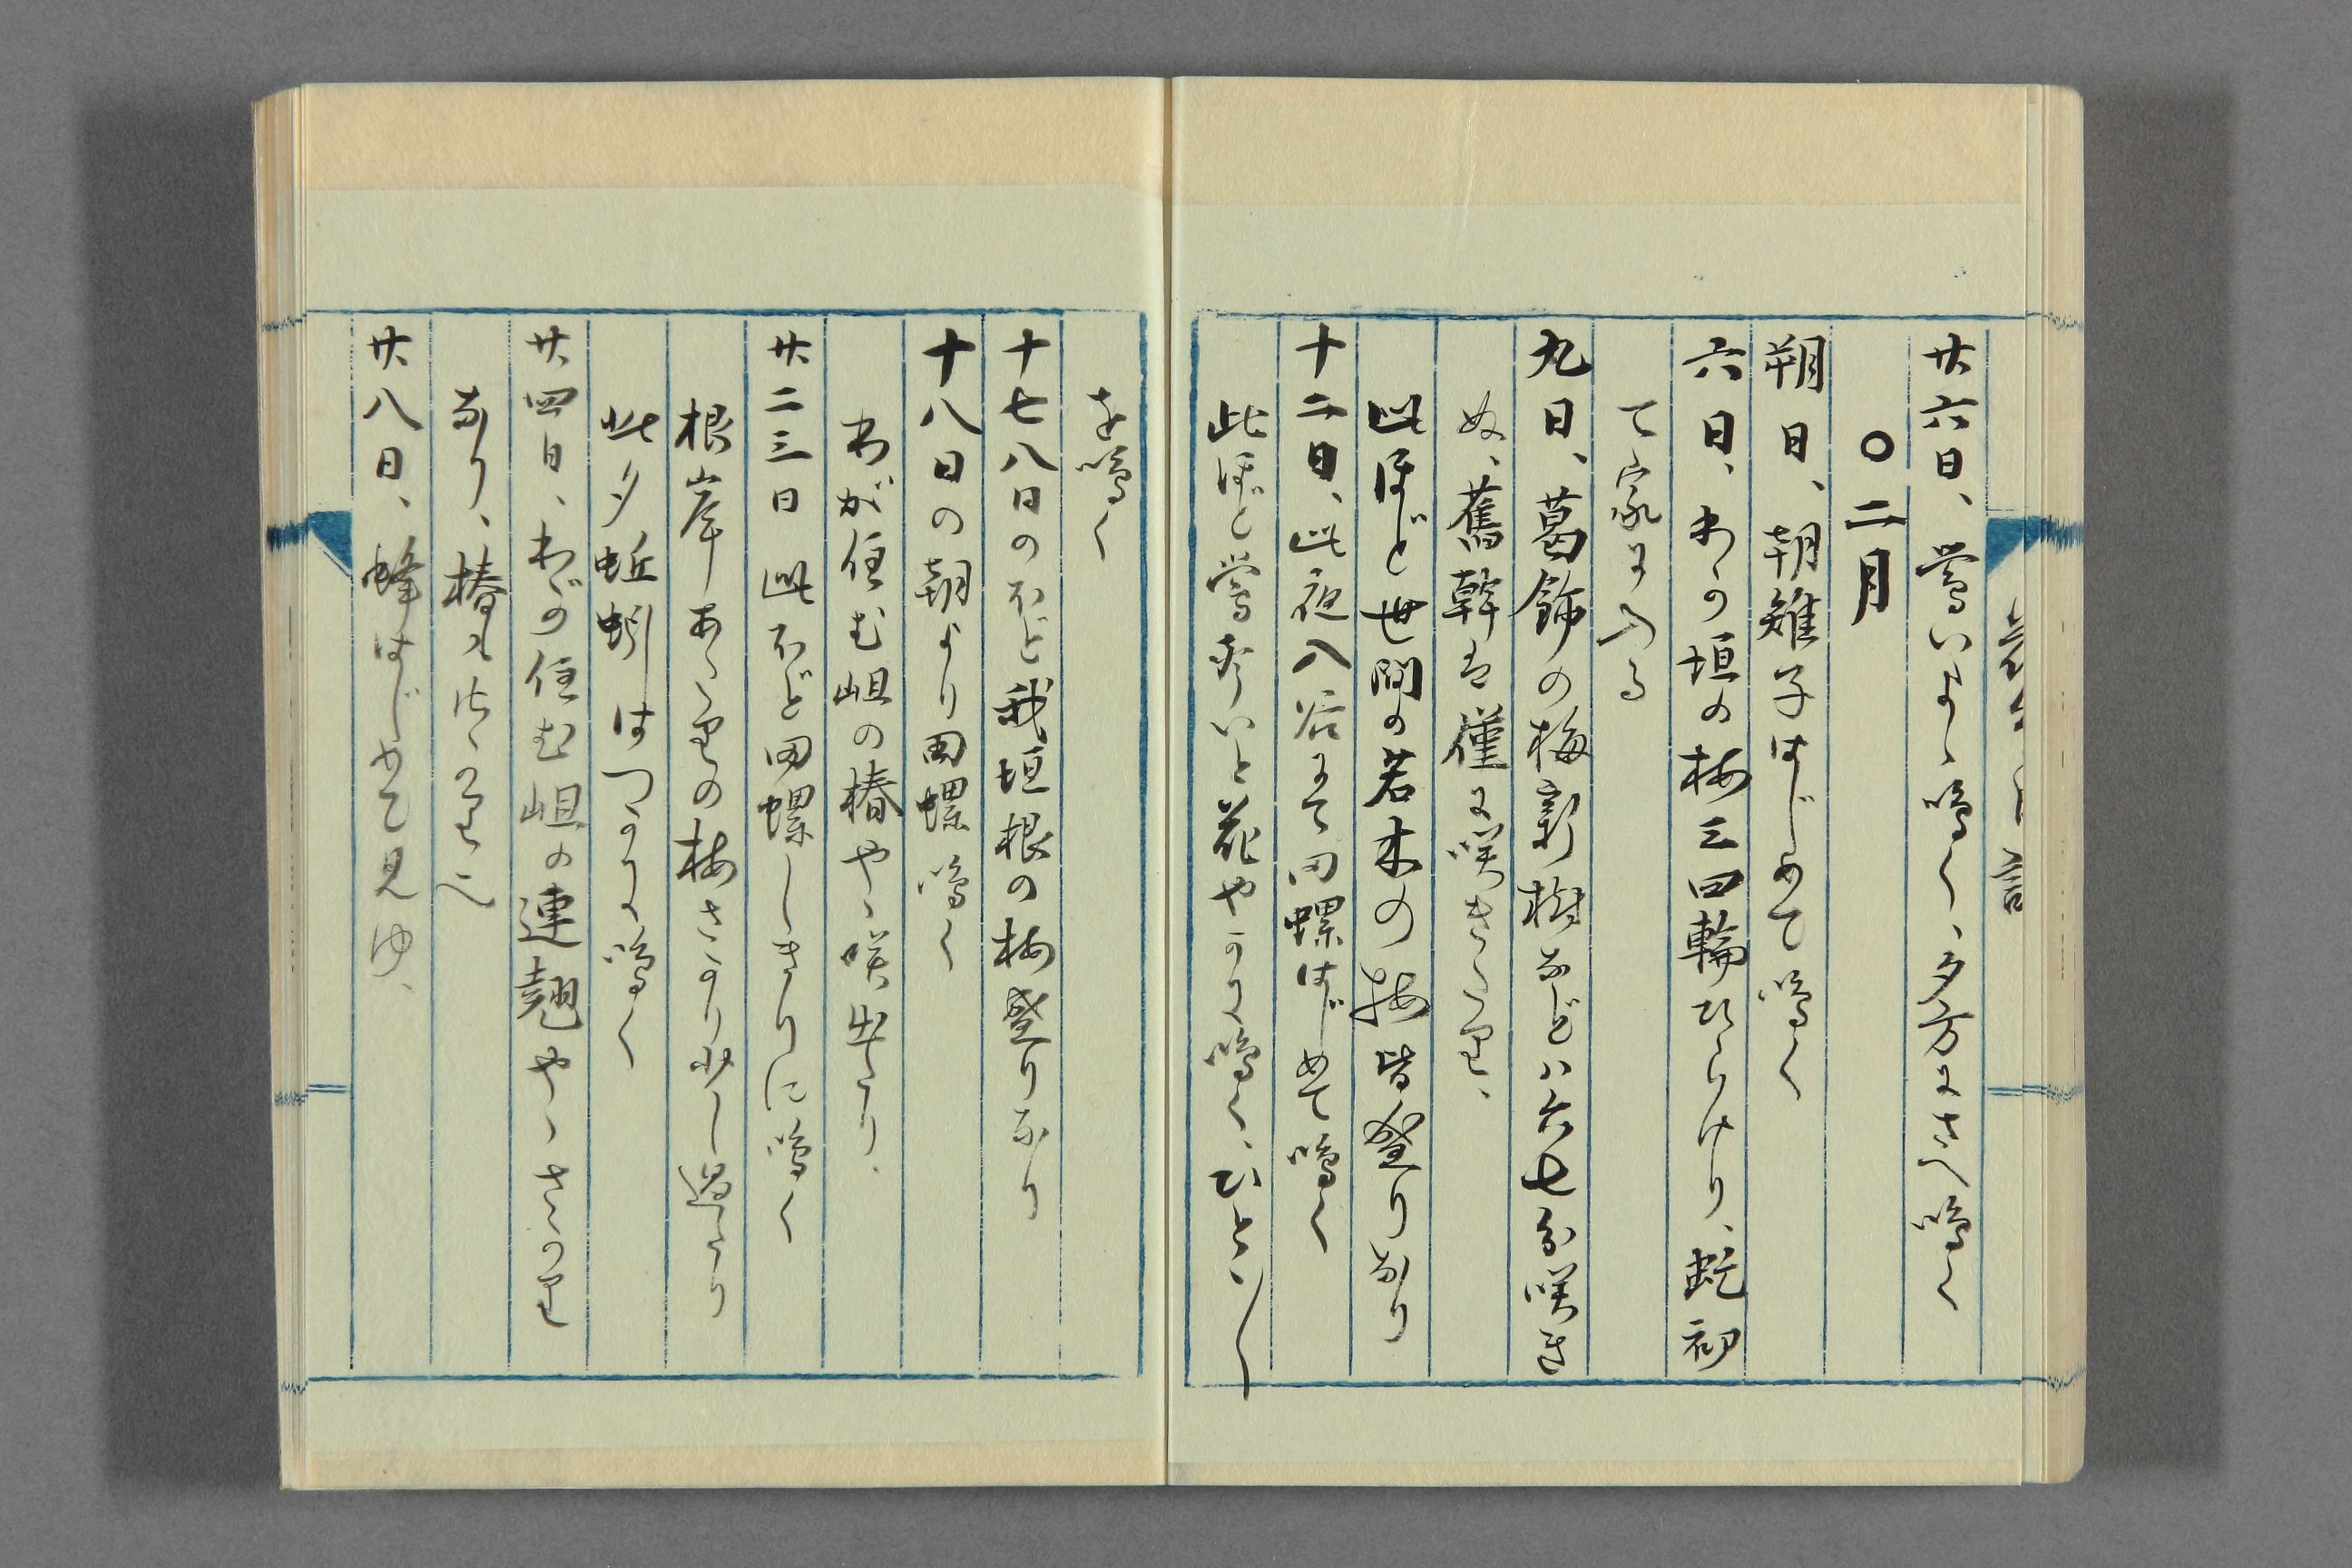 廿六日、鶯いまゝ鳴く、夕方にさへ鳴く
〇二月
朔日、朝雉子はじめて鳴く
六日、わが垣の梅三四輪ひらけり、虻初
て家に入る
九日、葛飾の梅新樹などハ六七分咲き
ぬ、舊幹は僅に咲きたり、
此ほど世間の若木の梅皆盛りなり
十二日、此夜入谷にて田螺はじめて鳴く
此ほど鶯いと花やかに鳴く、ひと〳〵
を鳴く
十七八日のほど我垣根の梅盛りなり
十八日の朝より田螺鳴く
わが住む岨の椿やゝ咲出たり、
廿二三日此ほど田螺しきりに鳴く
根岸あたりの梅さかり少し過たり
此夕蚯蚓はつかに鳴く
廿四日、わが住む岨の連翹やゝさかり
なり、椿も
廿八日、蜂はじめて見ゆ、